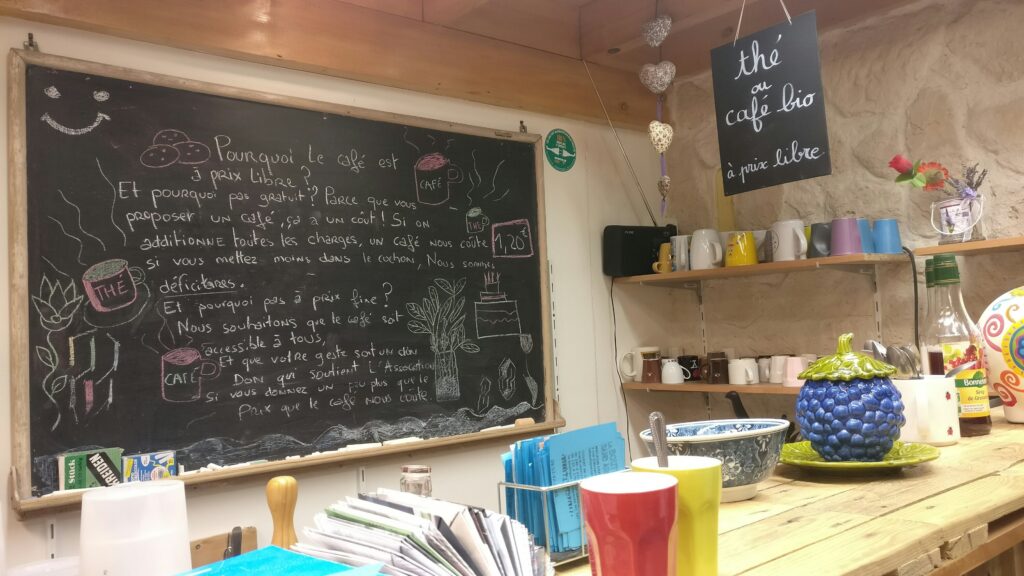 Pourquoi Le café est
à prix libre ?
Et pourquoi pas gratuit ? Parce que vous
proposer un café, ça a un coût ! Si on
additionne toutes les charges, un café nous coûte 1,20€
si vous mettez moins dans le cochon, Nous sommes
déficitaires.
Et pourquoi pas à prix fixe ?
Nous souhaitons que le café soit
accessible à tous,
Et que votre geste soit un don
Don qui soutient l'Association
Si vous donniez un peu plus que le
Prix que le café nous coûte
CAFÉ
THÉ
THÉ
CAFÉ
thé
ou
café bio
à prix libre
Bonneterre